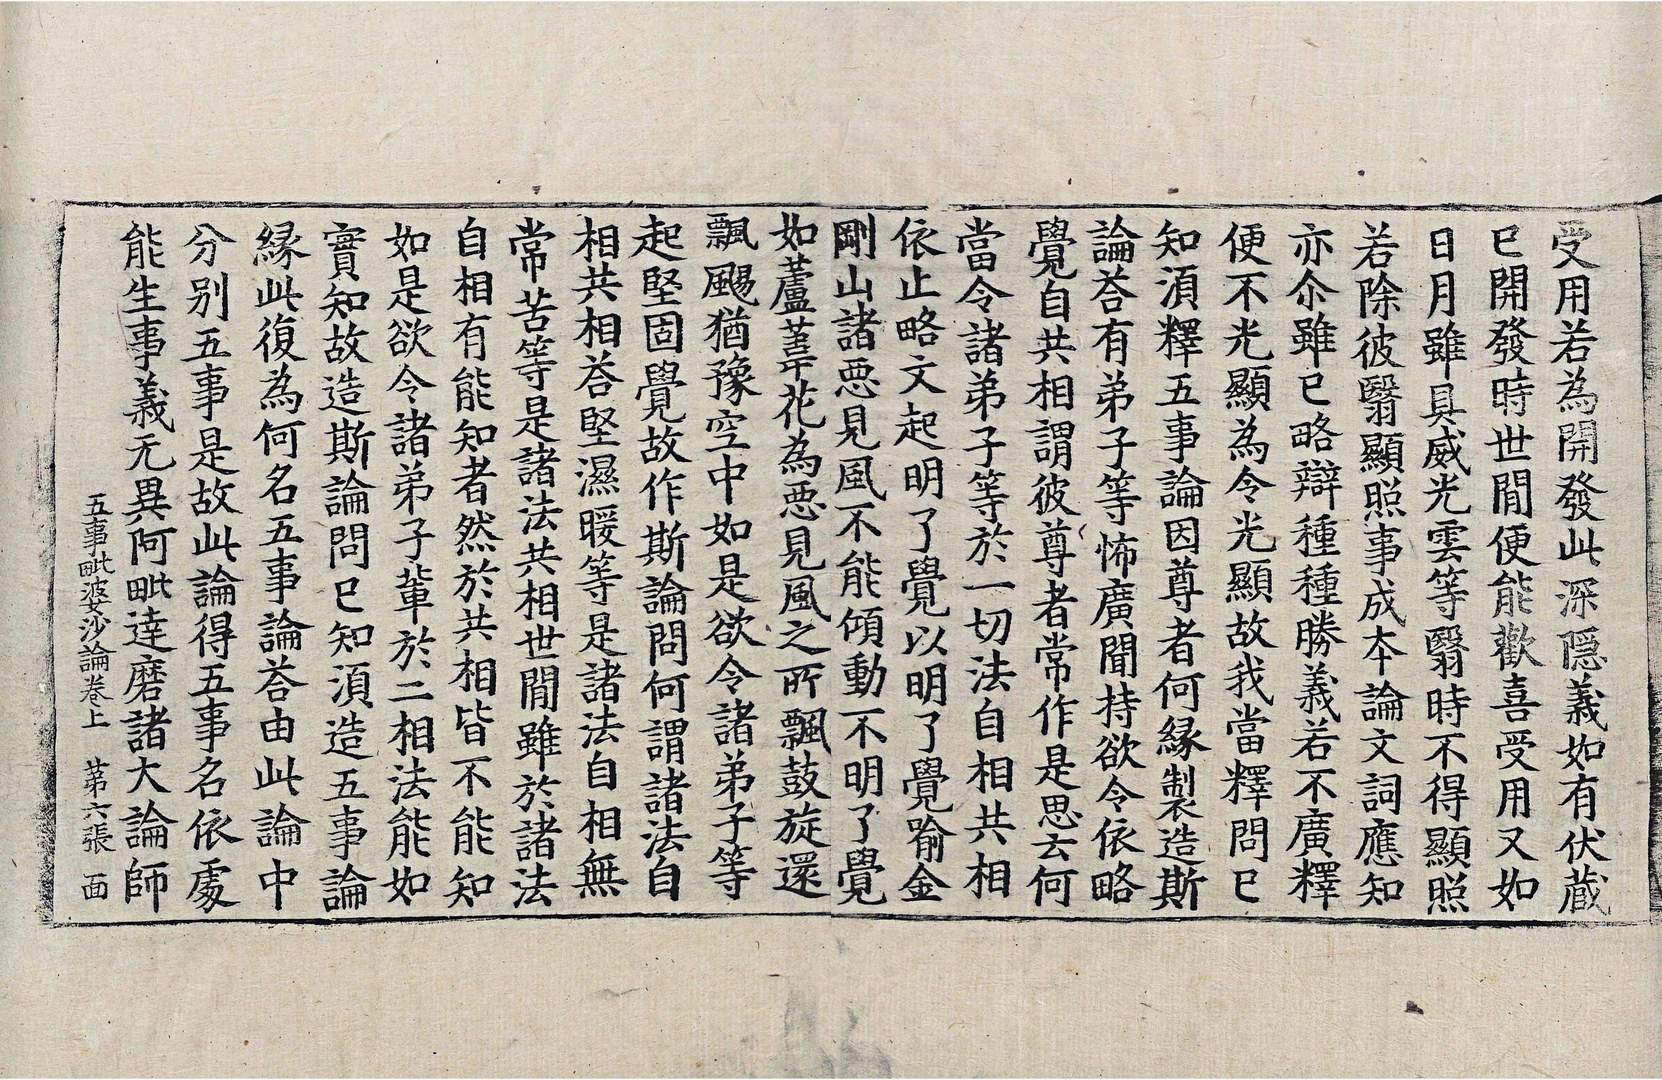 受用若為開發此深隱義如有伏藏
已開發時世間便能歡喜受用又如
日月雖具威光雲等翳時不得顯照
若除彼翳顯照事成本論文詞應知
亦尒雖已略辯種種勝義若不廣釋
便不光顯為令光顯故我當釋問已
知湏釋五事論因尊者何緣製造斯
論荅有弟子等怖廣聞持欲令依略
覺自共相謂彼尊者常作是思云何
當令諸弟子等於一切法自相共相
依止略文起明了覺以明了覺喻金
剛山諸惡見風不能傾動不明了覺
如蘆葦花為惡見風之所飄鼓旋還
飄颺猶豫空中如是欲令諸弟子等
起堅固覺故作斯論問何謂諸法自
相共相荅堅濕暖等是諸法自相無
常苦等是諸法共相世間雖於諸法
自相有能知者然於共相皆不能知
如是欲令諸弟子輩於二相法能如
實知故造斯論問已知湏造五事論
緣此復為何名五事論荅由此論中
分別五事是故此論得五事名依處
能生事義无異阿毗達磨諸大論師
五事毗婆沙論卷上　苐六張　面